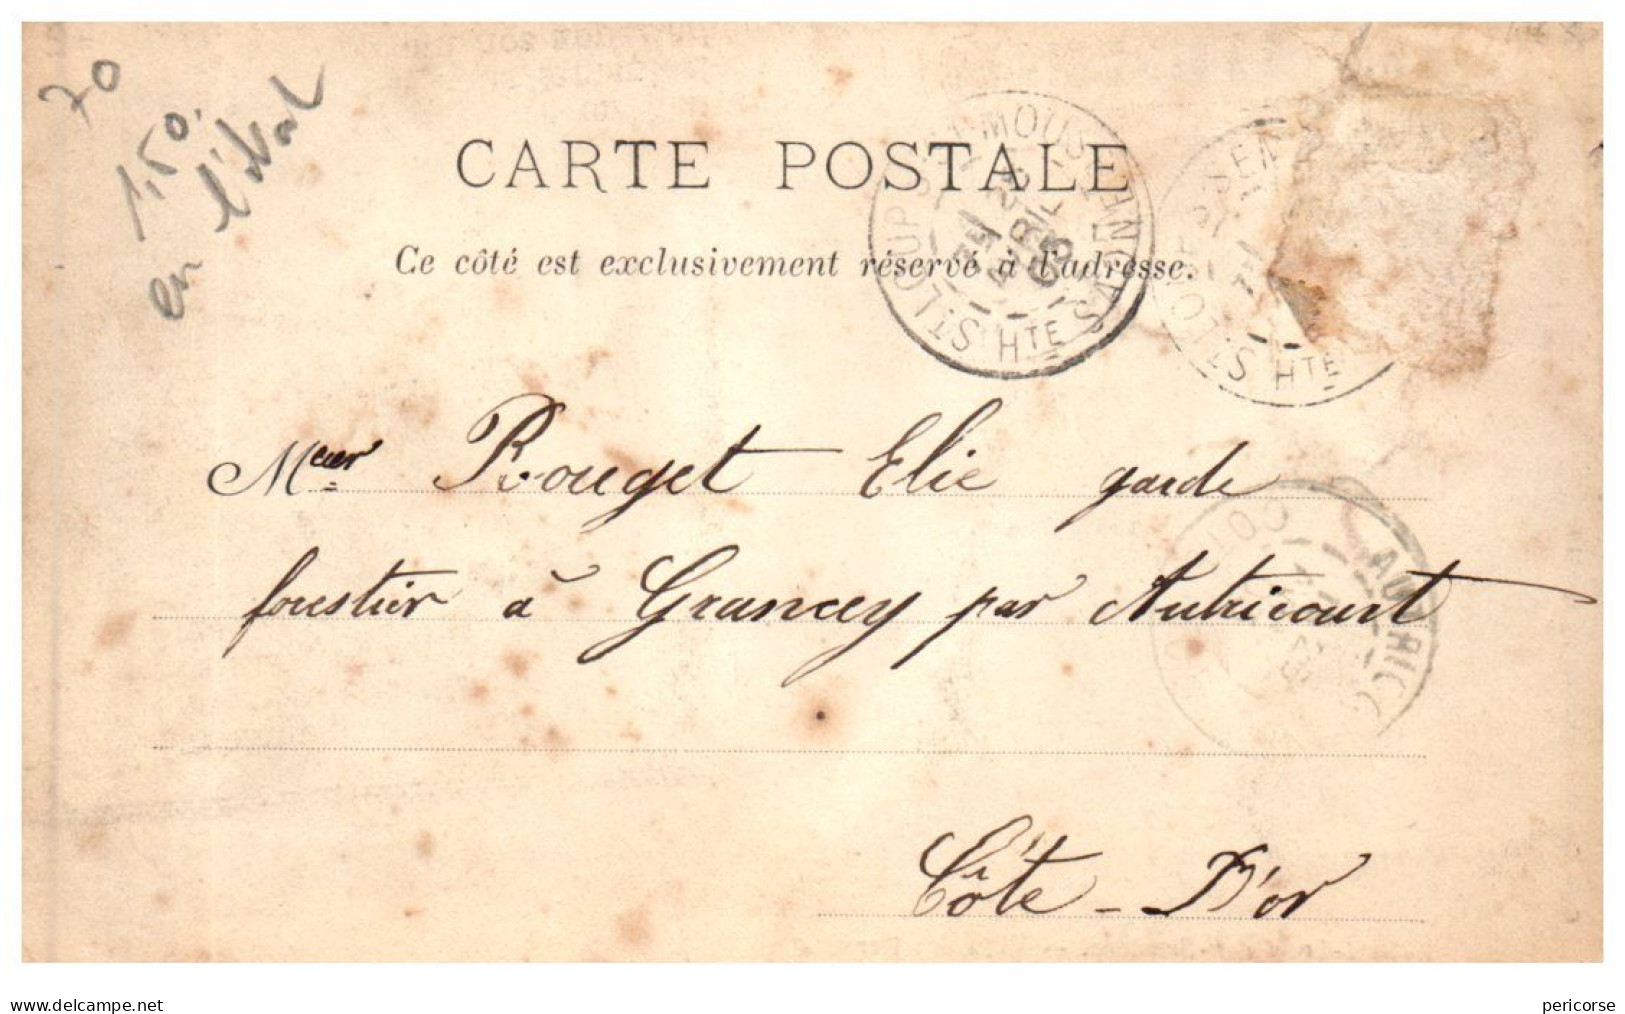 70
1,50.
en l'état
CARTE POSTALE
Ce côté est exclusivement réservé à l'adresse.
ST LOUP S
AVRIL
05
HTE SAONE
HTE
Meur Rouget Elie garde
forestier à Grancey par Autricourt
AUTRICO
CÔTE D'OR
Côte-D'or
www.delcampe.net
pericorse